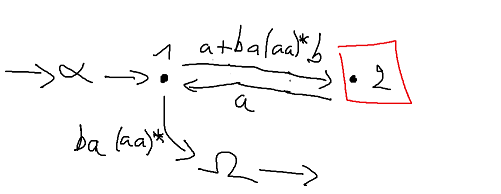 1
a+ba(aa)*b
α
2
a
ba(aa)*
Ω